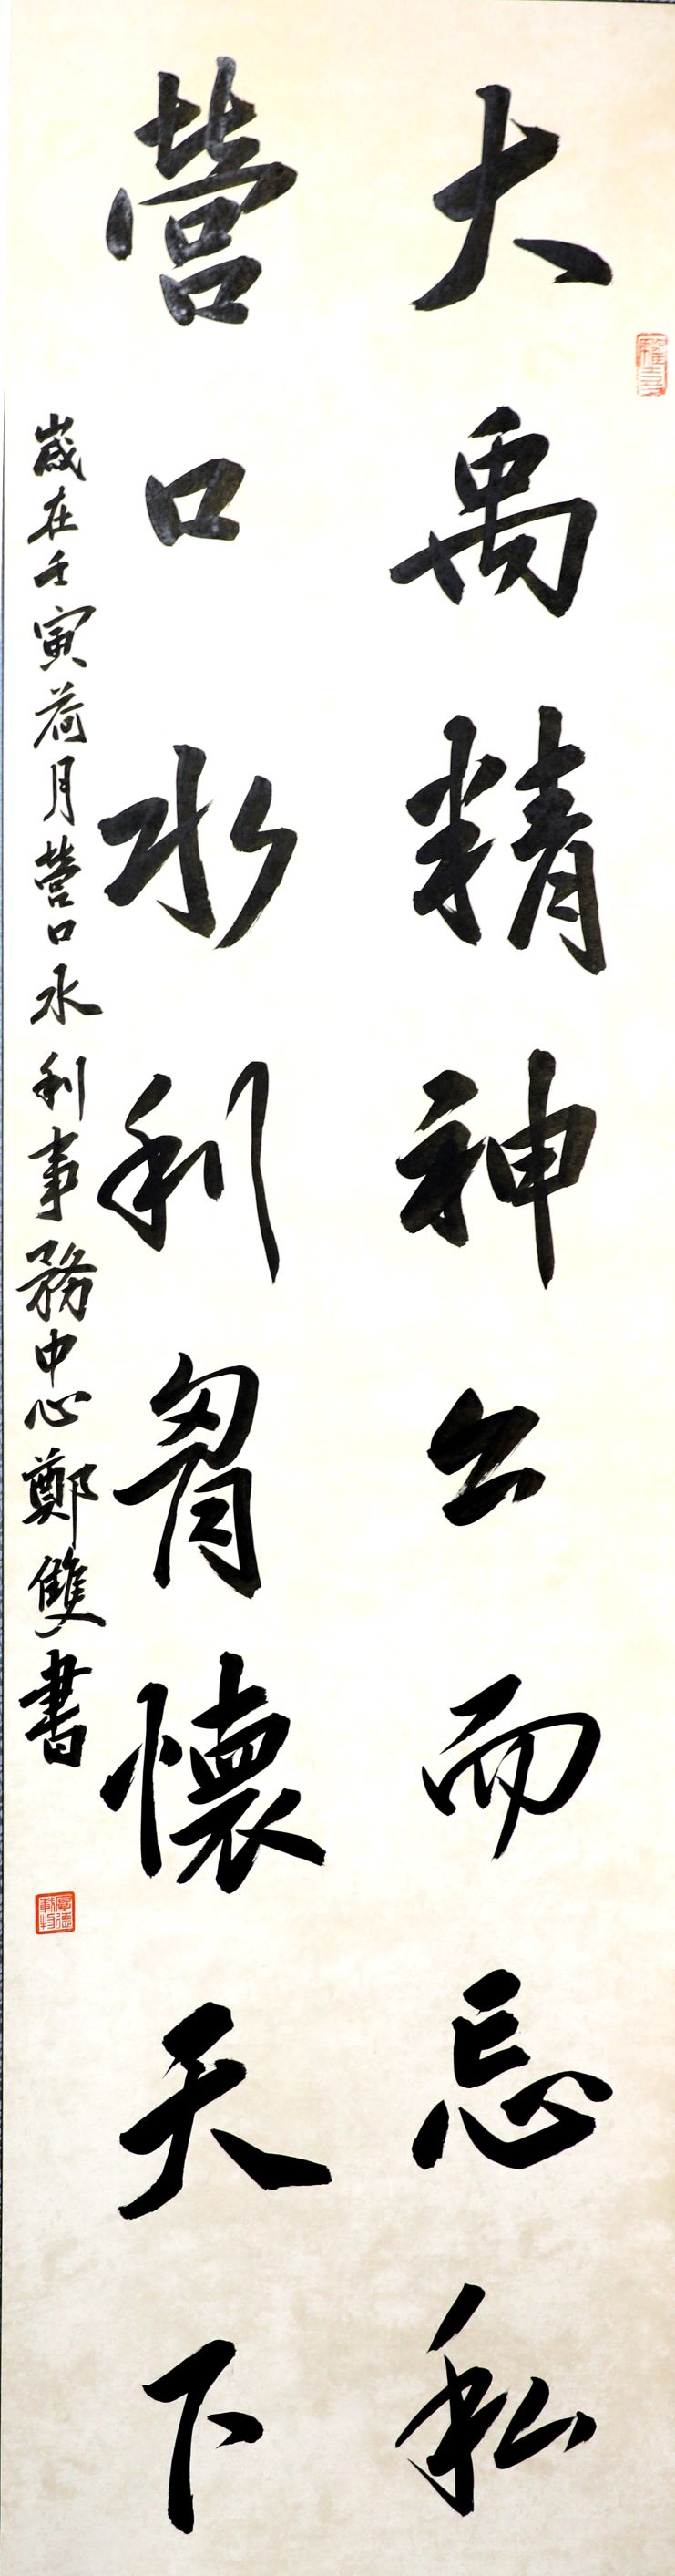 大禹精神公而忘私
营口水利胷懷天下
歲在壬寅荷月营口水利事務中心鄭雙書